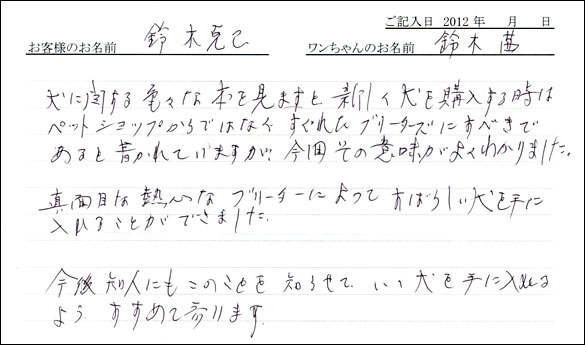 ご記入日 2012 年　月　日
お客様のお名前　鈴木克己　ワンちゃんのお名前　鈴木 茜
犬に関する色々な本を見ますと 新しく犬を購入する時は
ペットショップからではなく すぐれたブリーダーズにすべきで
あると書かれていますが、今回その意味がよくわかりました。
真面目な熱心なブリーダーによって すばらしい犬を手に
入れることができました。
今後知人にもこのことを知らせて いい犬を手に入れる
よう すすめて参ります。